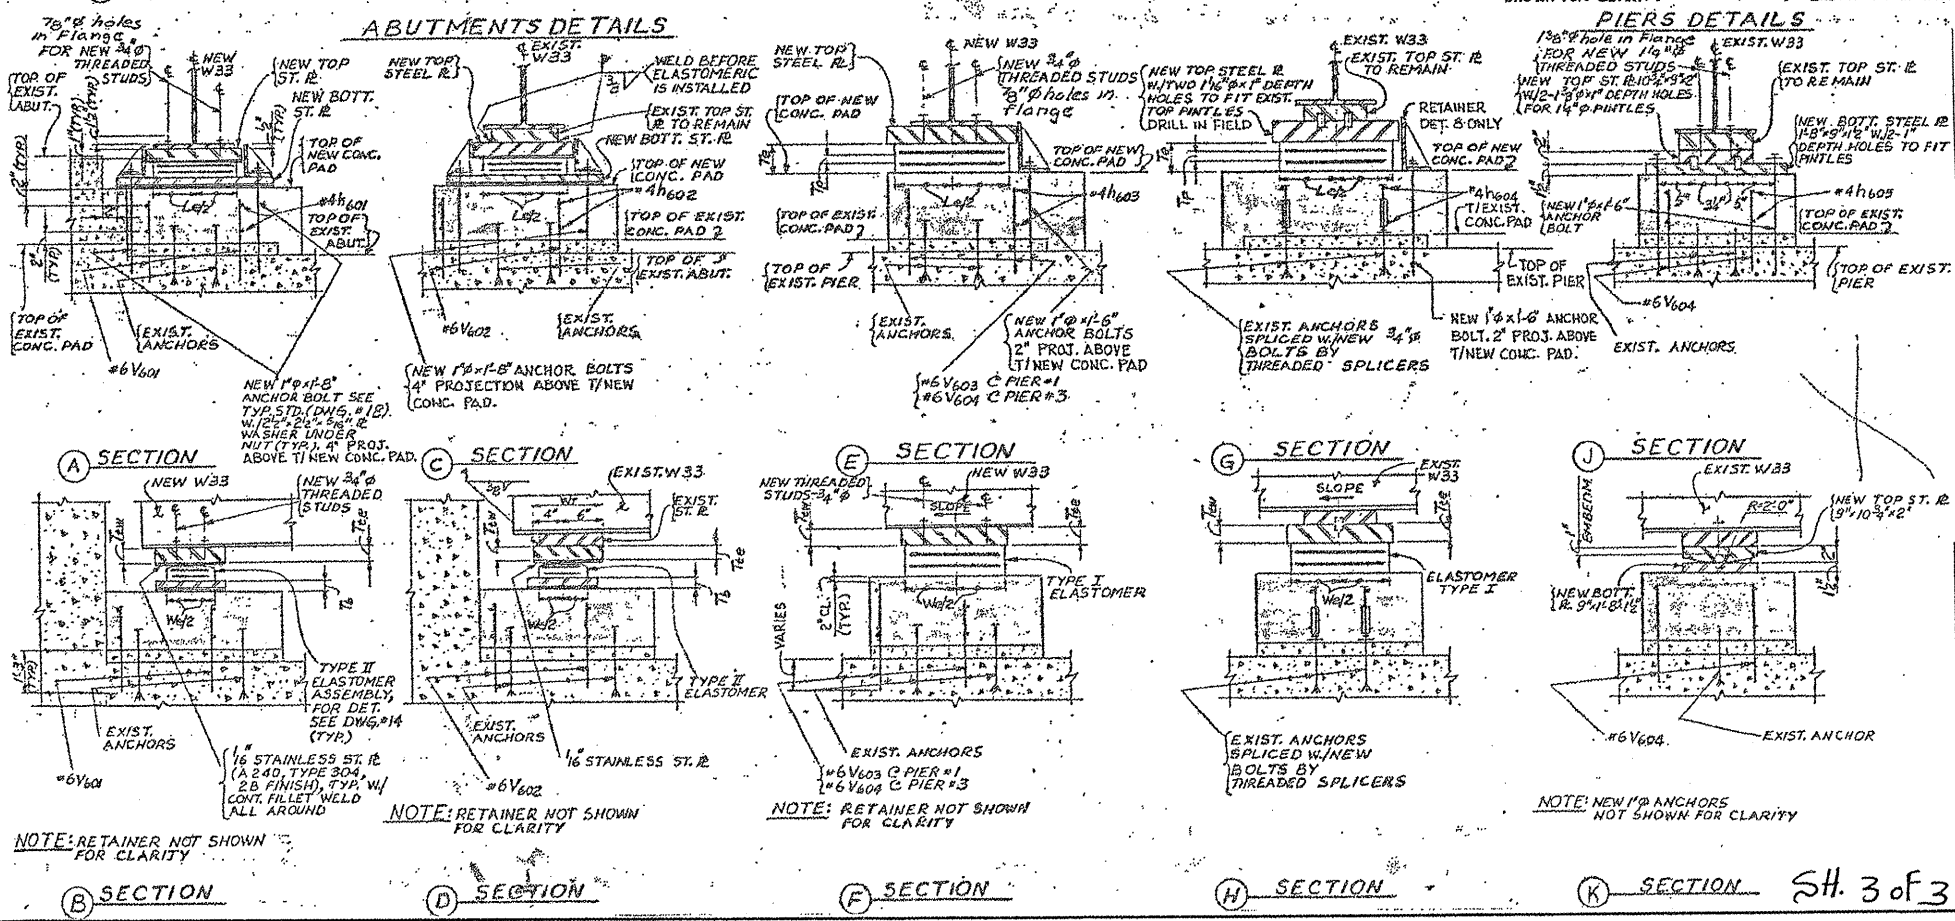 ABUTMENTS DETAILS
PIERS DETAILS
7/8"ø holes
in Flange
FOR NEW 3/4ø
THREADED
STUDS
NEW
W33
NEW TOP
ST. ℄
NEW BOTT.
ST. ℄
TOP OF
EXIST.
ABUT.
TOP OF
NEW CONC.
PAD
#4h601
TOP OF
EXIST.
ABUT.
Le/2
2" (TYP.)
TOP OF
EXIST.
CONC. PAD
EXIST.
ANCHORS
#6V601
NEW 1"ø×1'-8"
ANCHOR BOLT SEE
TYP. STD. (DWG. #18)
W/2½"×2½"×5/16" ℄
WASHER UNDER
NUT (TYP.), 4" PROJ.
ABOVE T/NEW CONC. PAD.
A SECTION
NEW TOP
STEEL ℄
EXIST.
W33
3/8
WELD BEFORE
ELASTOMERIC
IS INSTALLED
EXIST. TOP ST.
℄ TO REMAIN
NEW BOTT. ST. ℄
TOP OF NEW
CONC. PAD
#4h602
Le/2
TOP OF EXIST.
CONC. PAD
TOP OF
EXIST. ABUT.
#6V602
EXIST.
ANCHORS
NEW 1"ø×1'-8" ANCHOR BOLTS
4" PROJECTION ABOVE T/NEW
CONC. PAD.
C SECTION
NEW TOP
STEEL ℄
NEW W33
NEW 3/4"ø
THREADED STUDS
7/8"ø holes in
flange
TOP OF NEW
CONC. PAD
TOP OF NEW
CONC. PAD
Te
Le/2
#4h603
TOP OF EXIST.
CONC. PAD
TOP OF
EXIST. PIER
EXIST.
ANCHORS
NEW 1"ø×1'-6"
ANCHOR BOLTS
2" PROJ. ABOVE
T/NEW CONC. PAD
#6V603 @ PIER #1
#6V604 @ PIER #3
E SECTION
NEW TOP STEEL ℄
W/TWO 1 1/16"ø×1" DEPTH
HOLES TO FIT EXIST.
TOP PINTLES
DRILL IN FIELD
EXIST. W33
EXIST. TOP ST. ℄
TO REMAIN
RETAINER
DET. 8 ONLY
TOP OF NEW
CONC. PAD
Le/2
#4h604
T/EXIST.
CONC. PAD
TOP OF
EXIST. PIER
EXIST. ANCHORS
SPLICED W/NEW 3/4"ø
BOLTS BY
THREADED SPLICERS
NEW 1"ø×1'-6" ANCHOR
BOLT. 2" PROJ. ABOVE
T/NEW CONC. PAD.
G SECTION
1 3/8"ø hole in Flange
FOR NEW 1¼"ø
THREADED STUDS
EXIST. W33
EXIST. TOP ST. ℄
TO REMAIN
FOR 1¼"ø PINTLES
NEW BOTT. STEEL ℄
1'-8"×9"×1½" W/2-1"
DEPTH HOLES TO FIT
PINTLES
#4h605
5" 3½" 5"
NEW 1"ø×1'-6"
ANCHOR
BOLT
TOP OF EXIST.
CONC. PAD
TOP OF EXIST.
PIER
#6V604
EXIST. ANCHORS
J SECTION
NEW W33
NEW 3/4"ø
THREADED
STUDS
Tew
Tee
Tb
We/2
TYPE II
ELASTOMER
ASSEMBLY,
FOR DET.
SEE DWG. #14
(TYP.)
EXIST.
ANCHORS
#6V601
STAINLESS ST. ℄
(A240, TYPE 304,
2B FINISH), TYP. W/
CONT. FILLET WELD
ALL AROUND
NOTE: RETAINER NOT SHOWN
FOR CLARITY
B SECTION
3/8
EXIST. W33
EXIST.
ST. ℄
4" 6"
Tew
Tee
Tb
We/2
TYPE II
ELASTOMER
EXIST.
ANCHORS
STAINLESS ST. ℄
#6V602
NOTE: RETAINER NOT SHOWN
FOR CLARITY
D SECTION
NEW THREADED
STUDS-3/4"ø
NEW W33
SLOPE
Tew
Tee
TYPE I
ELASTOMER
VARIES
2" CL.
(TYP.)
We/2
EXIST. ANCHORS
#6V603 @ PIER #1
#6V604 @ PIER #3
NOTE: RETAINER NOT SHOWN
FOR CLARITY
F SECTION
EXIST.
W33
SLOPE
Tew
Tee
ELASTOMER
TYPE I
We/2
EXIST. ANCHORS
SPLICED W/NEW
BOLTS BY
THREADED SPLICERS
H SECTION
EXIST. W33
R=2'-0"
NEW TOP ST. ℄
9"×10¾"×2"
1" EMBEDM.
NEW BOTT.
℄ 9"×1'-8"×1½"
#6V604
EXIST. ANCHOR
NOTE: NEW 1"ø ANCHORS
NOT SHOWN FOR CLARITY
K SECTION
SH. 3 of 3